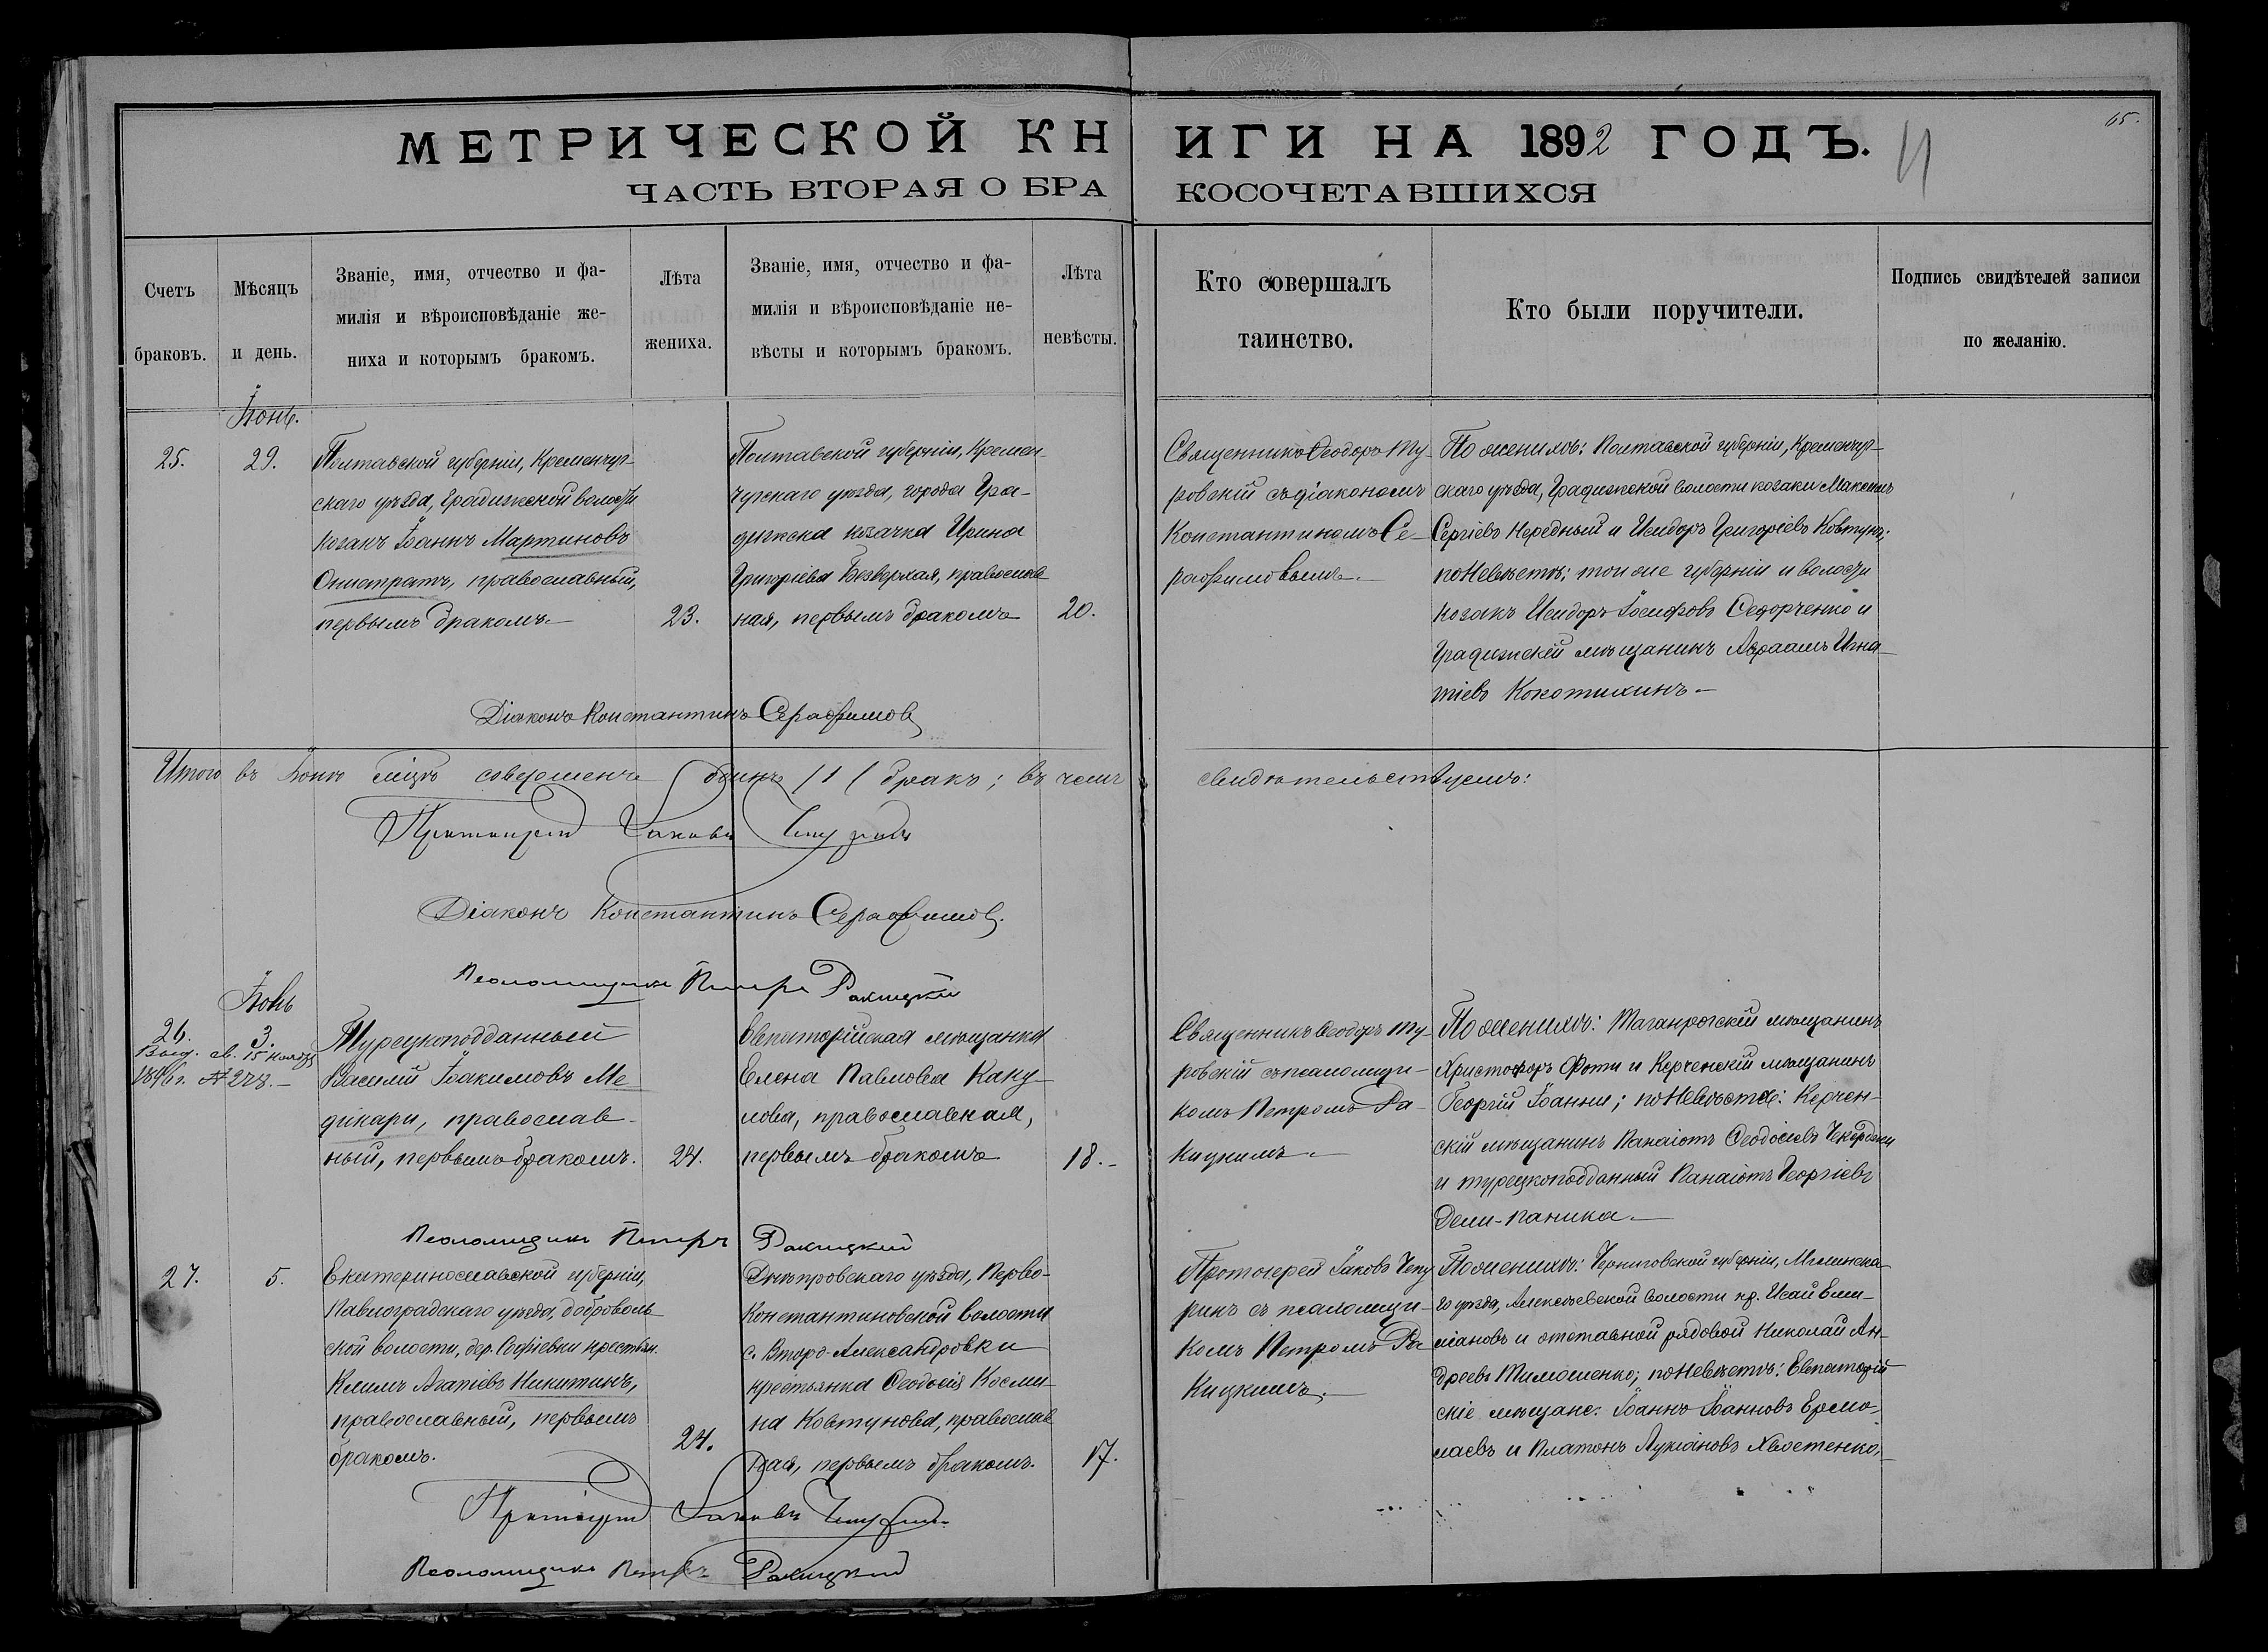 65.
МЕТРИЧЕСКОЙ КНИГИ НА 1892 ГОДЪ.
ЧАСТЬ ВТОРАЯ О БРАКОСОЧЕТАВШИХСЯ
Счетъ
браковъ.
Мѣсяцъ
и день.
Званіе, имя, отчество и фа-
милія и вѣроисповѣданіе же-
ниха и которымъ бракомъ.
Лѣта
жениха.
Званіе, имя, отчество и фа-
милія и вѣроисповѣданіе не-
вѣсты и которымъ бракомъ.
Лѣта
невѣсты.
Кто совершалъ
таинство.
Кто были поручители.
Подпись свидѣтелей записи
по желанію.
25.
29.
Полтавской губерніи, Кременчуг-
скаго уѣзда, Градижской волости
козакъ Іоаннъ Мартиновъ
Онистратъ, православный,
первымъ бракомъ.
23.
Полтавской губерніи, Кремен-
чугскаго уѣзда, города Гра-
дижска козачка Ирина
Григоріева Безверхая, православ
ная, первымъ бракомъ
20.
Священникъ Ѳеодоръ Ту-
ровскій съ діакономъ
Константиномъ Се-
рафимовымъ.
По женихѣ: Полтавской губерніи, Кременчуг-
скаго уѣзда, Градижской волости козаки Максимъ
Сергіевъ Нередный и Исидоръ Григоріевъ Ковтунъ;
по невѣстѣ: той же губерніи и волости
козакъ Исидоръ Іосифовъ Сидорченко и
Градижскій мѣщанинъ Авраамъ Игна-
тіевъ Кокотихинъ
Діаконъ Константинъ Серафимовъ
Итого въ мѣсяцѣ совершенъ одинъ /1/ бракъ; въ чемъ свидѣтельствуемъ:
Протоіерей Іаковъ Чепуринъ
Діаконъ Константинъ Серафимовъ.
Псаломщикъ Петръ Ракицкій
26.
3.
Выд. св. 15 ноября
1896 г. № 278.
Турецкоподданный
Василій Іоакимовъ Ме
дикари, православ-
ный, первымъ бракомъ.
24.
Евпаторійская мѣщанка
Елена Павлова Каку-
лова, православная,
первымъ бракомъ
18.
Священникъ Ѳеодоръ Ту-
ровскій съ псаломщи-
комъ Петромъ Ра-
кицкимъ.
По женихѣ: Таганрогскій мѣщанинъ
Христофоръ Фоти и Керченскій мѣщанинъ
Георгій Іоанни; по невѣстѣ: Керчен-
скій мѣщанинъ Панаіотъ Ѳеодосіевъ
и турецкоподданный Панаіотъ Георгіевъ
Дели-Паника.
Псаломщикъ Петръ Ракицкій
27.
5.
Екатеринославской губерніи,
Павлоградскаго уѣзда, Доброволь-
ской волости, дер. Софіевки крестьян.
Климъ Агапіевъ Никитинъ,
православный, первымъ
бракомъ.
24.
Днѣпровскаго уѣзда, Перво-
Константиновской волости
с. Второ-Александровки
крестьянка Ѳеодосія Косми-
на Ковтунова, православ
ная, первымъ бракомъ.
17.
Протоіерей Іаковъ Чепу
ринъ съ псаломщи-
комъ Петромъ Ра
кицкимъ.
По женихѣ: Черниговской губерніи, Мглинска-
го уѣзда, Алексѣевской волости кр. Исай Еми-
ліановъ и отставной рядовой Николай Ан-
дреевъ Тимошенко; по невѣстѣ: Евпаторій
скіе мѣщане: Іоаннъ Іоанновъ Ермо-
лаевъ и Платонъ Лукіановъ Хвостенко.
Протоіерей Іаковъ Чепуринъ
Псаломщикъ Петръ Ракицкій